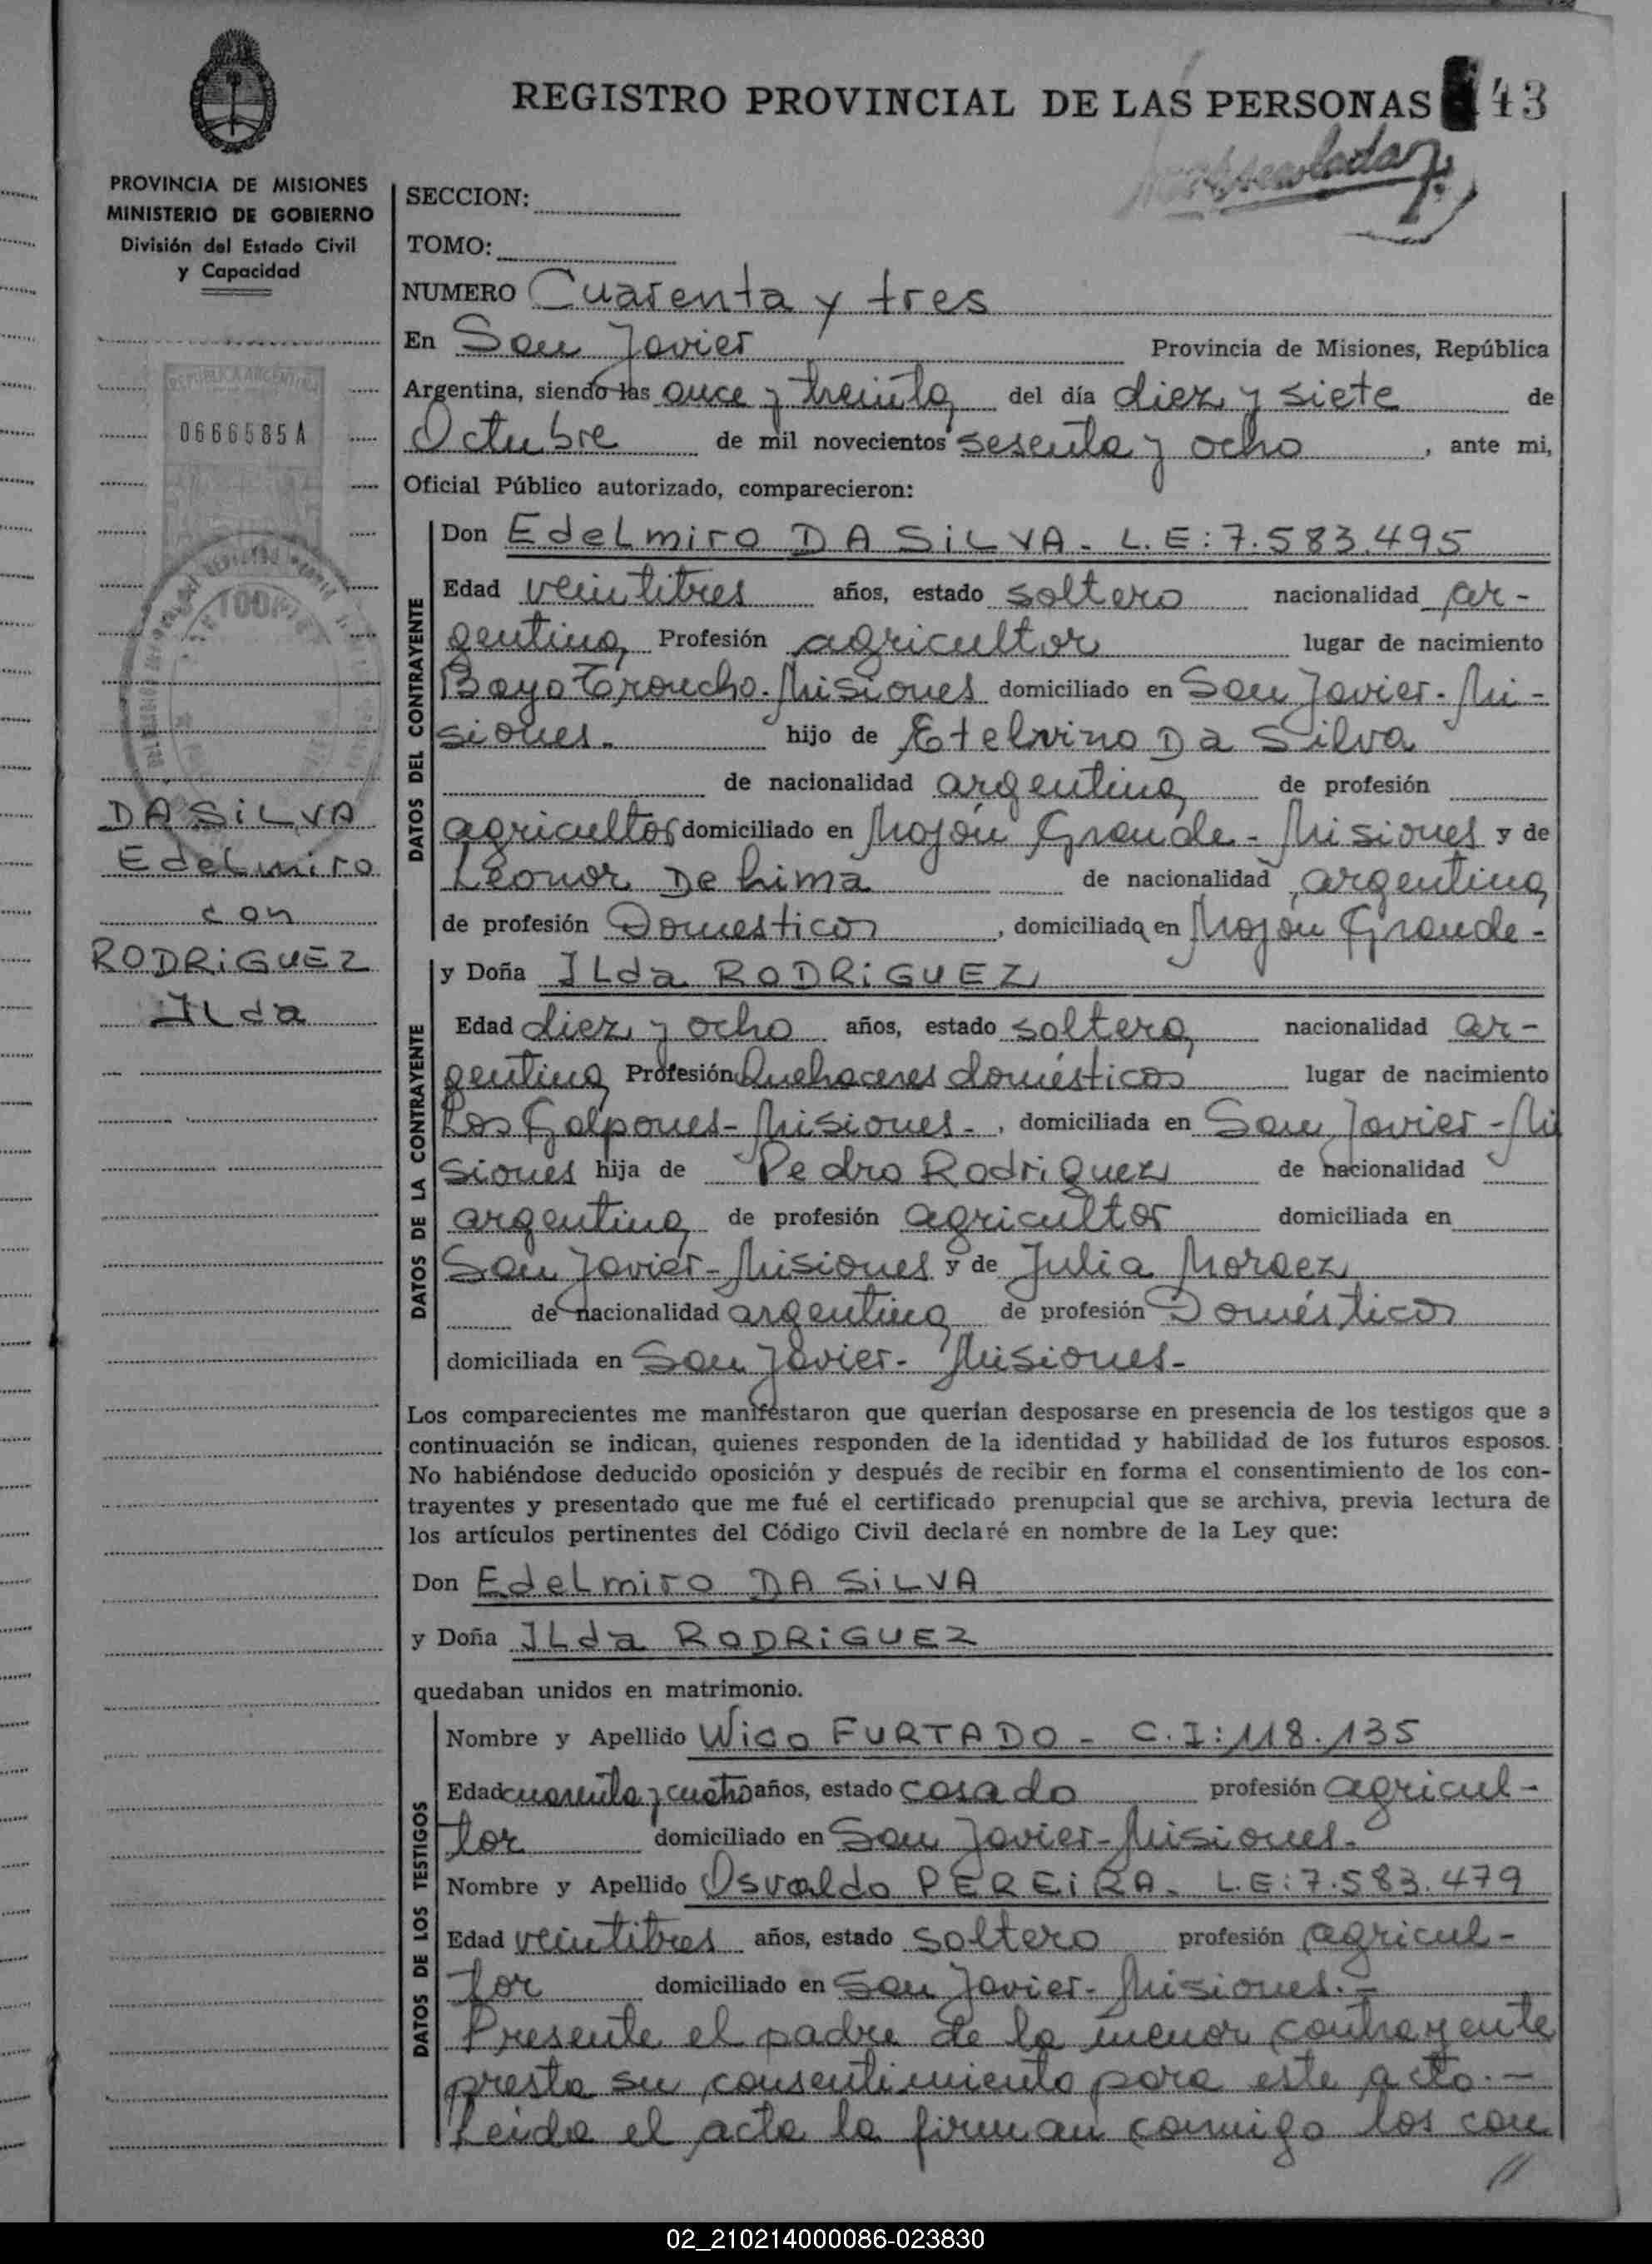 REGISTRO PROVINCIAL DE LAS PERSONAS 43
PROVINCIA DE MISIONES
MINISTERIO DE GOBIERNO
División del Estado Civil
y Capacidad
REPUBLICA ARGENTINA
0666585 A
DA SiLVA
Edelmiro
con
RODRiGUEZ
ILda
SECCION:
TOMO:
NUMERO Cuarenta y tres
En San Javier Provincia de Misiones, República
Argentina, siendo las once y treinta del día diez y siete de
Octubre de mil novecientos sesenta y ocho, ante mi,
Oficial Público autorizado, comparecieron:
DATOS DEL CONTRAYENTE
Don EdeLmiro DA SiLVA - L.E:7.583.495
Edad veintitres años, estado soltero nacionalidad ar-
gentina Profesión agricultor lugar de nacimiento
Misiones domiciliado en San Javier - Mi-
siones. hijo de Etelvino Da Silva
de nacionalidad argentina de profesión
agricultor domiciliado en Mojón Grande - Misiones y de
Leonor De Lima de nacionalidad argentina
de profesión Domesticos, domiciliada en Mojón Grande -
y Doña ILda RODRiGUEZ
DATOS DE LA CONTRAYENTE
Edad diez y ocho años, estado soltera nacionalidad ar-
gentina Profesión Quehaceres domésticos lugar de nacimiento
Los Galpones - Misiones -, domiciliada en San Javier - Mi
siones hija de Pedro Rodriguez de nacionalidad
argentina de profesión agricultor domiciliada en
San Javier - Misiones y de Julia Moraez
de nacionalidad argentina de profesión Domésticos
domiciliada en San Javier - Misiones -
Los comparecientes me manifestaron que querían desposarse en presencia de los testigos que a
continuación se indican, quienes responden de la identidad y habilidad de los futuros esposos.
No habiéndose deducido oposición y después de recibir en forma el consentimiento de los con-
trayentes y presentado que me fué el certificado prenupcial que se archiva, previa lectura de
los artículos pertinentes del Código Civil declaré en nombre de la Ley que:
Don EdeLmiro DA SiLVA
y Doña ILda RODRiGUEZ
quedaban unidos en matrimonio.
DATOS DE LOS TESTIGOS
Nombre y Apellido Wico FURTADO - C.I:118.135
Edad cuarenta y cuatro años, estado casado profesión agricul-
tor domiciliado en San Javier - Misiones -
Nombre y Apellido Osvaldo PEREiRA - L.E:7.583.479
Edad veintitres años, estado soltero profesión agricul-
tor domiciliado en San Javier - Misiones. -
Presente el padre de la menor contrayente
presta su consentimiento para este acto. -
Leida el acta la firman conmigo los con
//
02_210214000086-023830